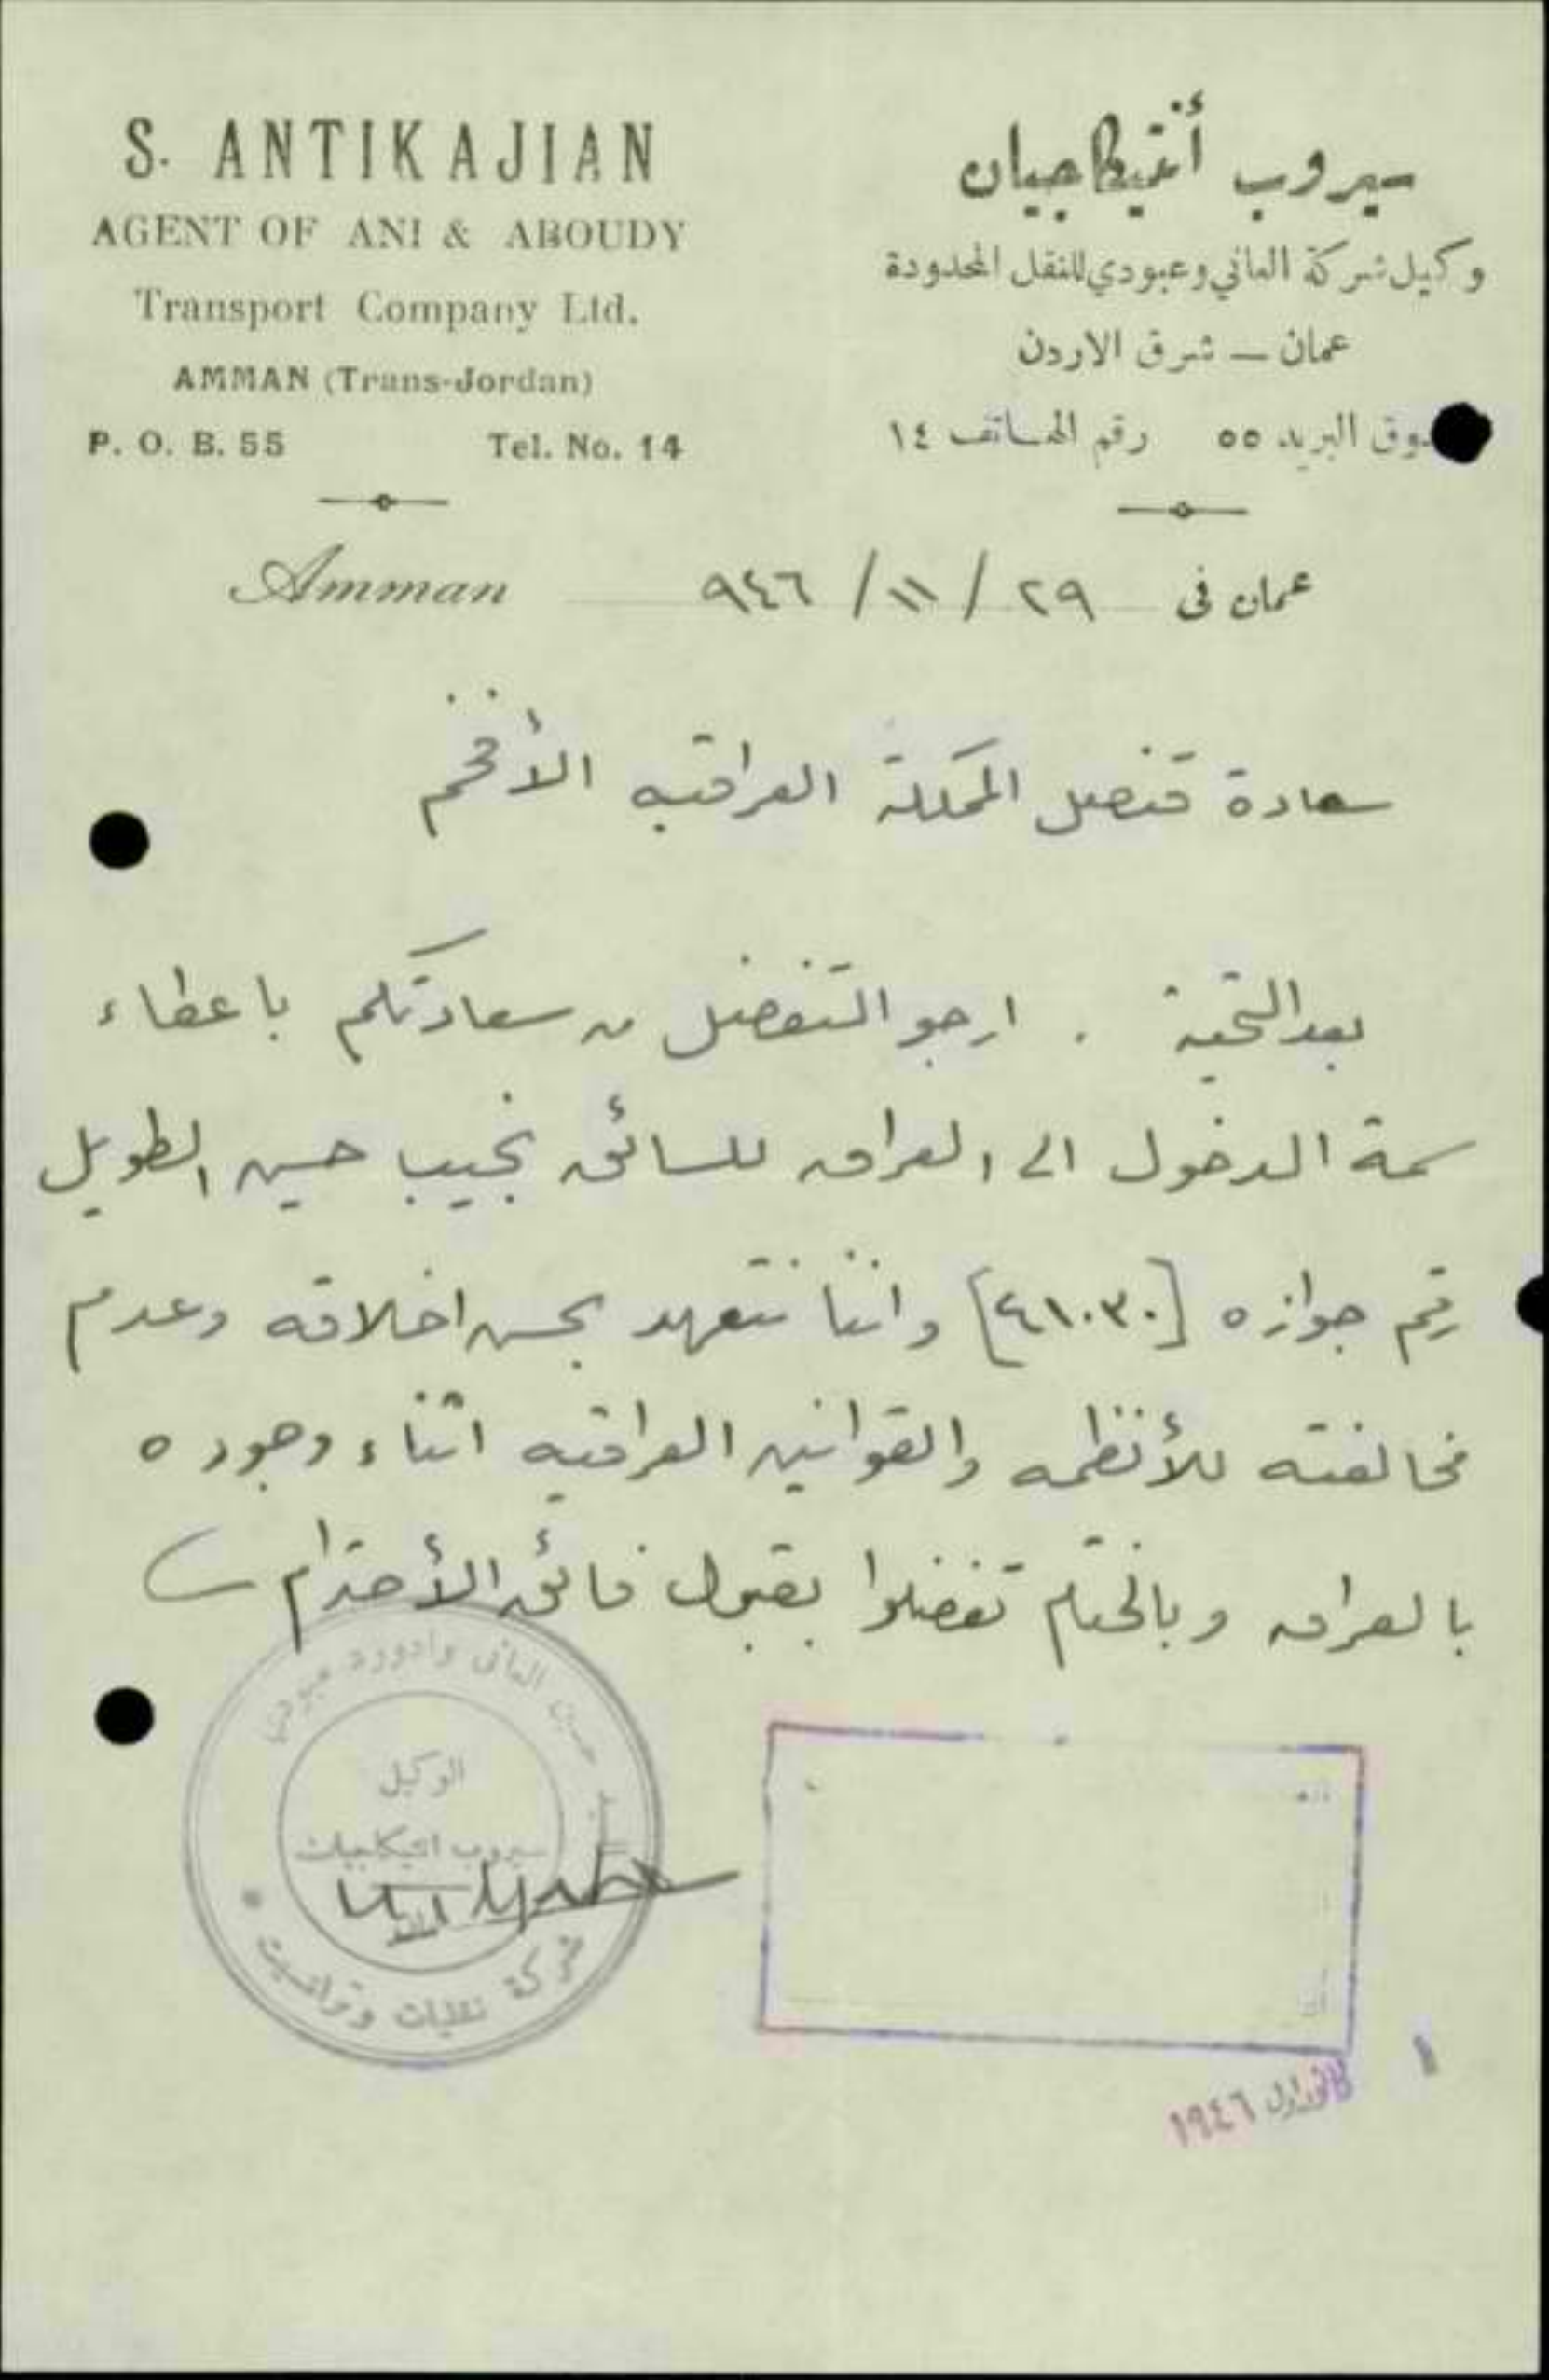 S. ANTIKAJIAN
AGENT OF ANI & ABOUDY
Transport Company Ltd.
AMMAN (Trans-Jordan)
P. O. B. 55 Tel. No. 14
سيروب أنتيكاجيان
وكيل شركة العاني وعبودي للنقل المحدودة
عمان — شرق الاردن
دوق البريد ٥٥ رقم الهاتف ١٤
Amman عمان فى ٢٩ / ١١ / ٩٤٦
سعادة قنصل المملكة العراقيه الأفخم
بعد التحية . ارجو التفضل من سعادتكم باعطاء
سمة الدخول الى العراق للسائق نجيب حسين الطويل
رقم جوازه [٤١٠٣٠] واننا نتعهد بحسن اخلاقه وعدم
مخالفته للأنظمه والقوانين العراقيه اثناء وجوده
بالعراق وبالختام تفضلوا بقبول فائق الأحترام
حسين العاني وادورد عبودي
الوكيل
سيروب انتيكاجيان
شركة نقليات وترانسيت
١ كانون اول ١٩٤٦